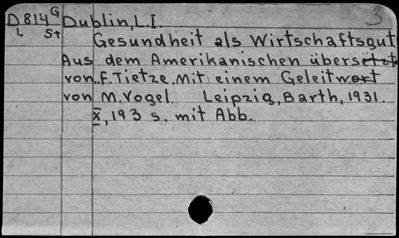 D814G Dublin, L.I. 3
L St
Gesundheit als Wirtschaftsgut
Aus dem Amerikanischen übersetzt
von F. Tietze. Mit einem Geleitwort
von M. Vogel. Leipzig, Barth, 1931.
X, 193 s. mit Abb.